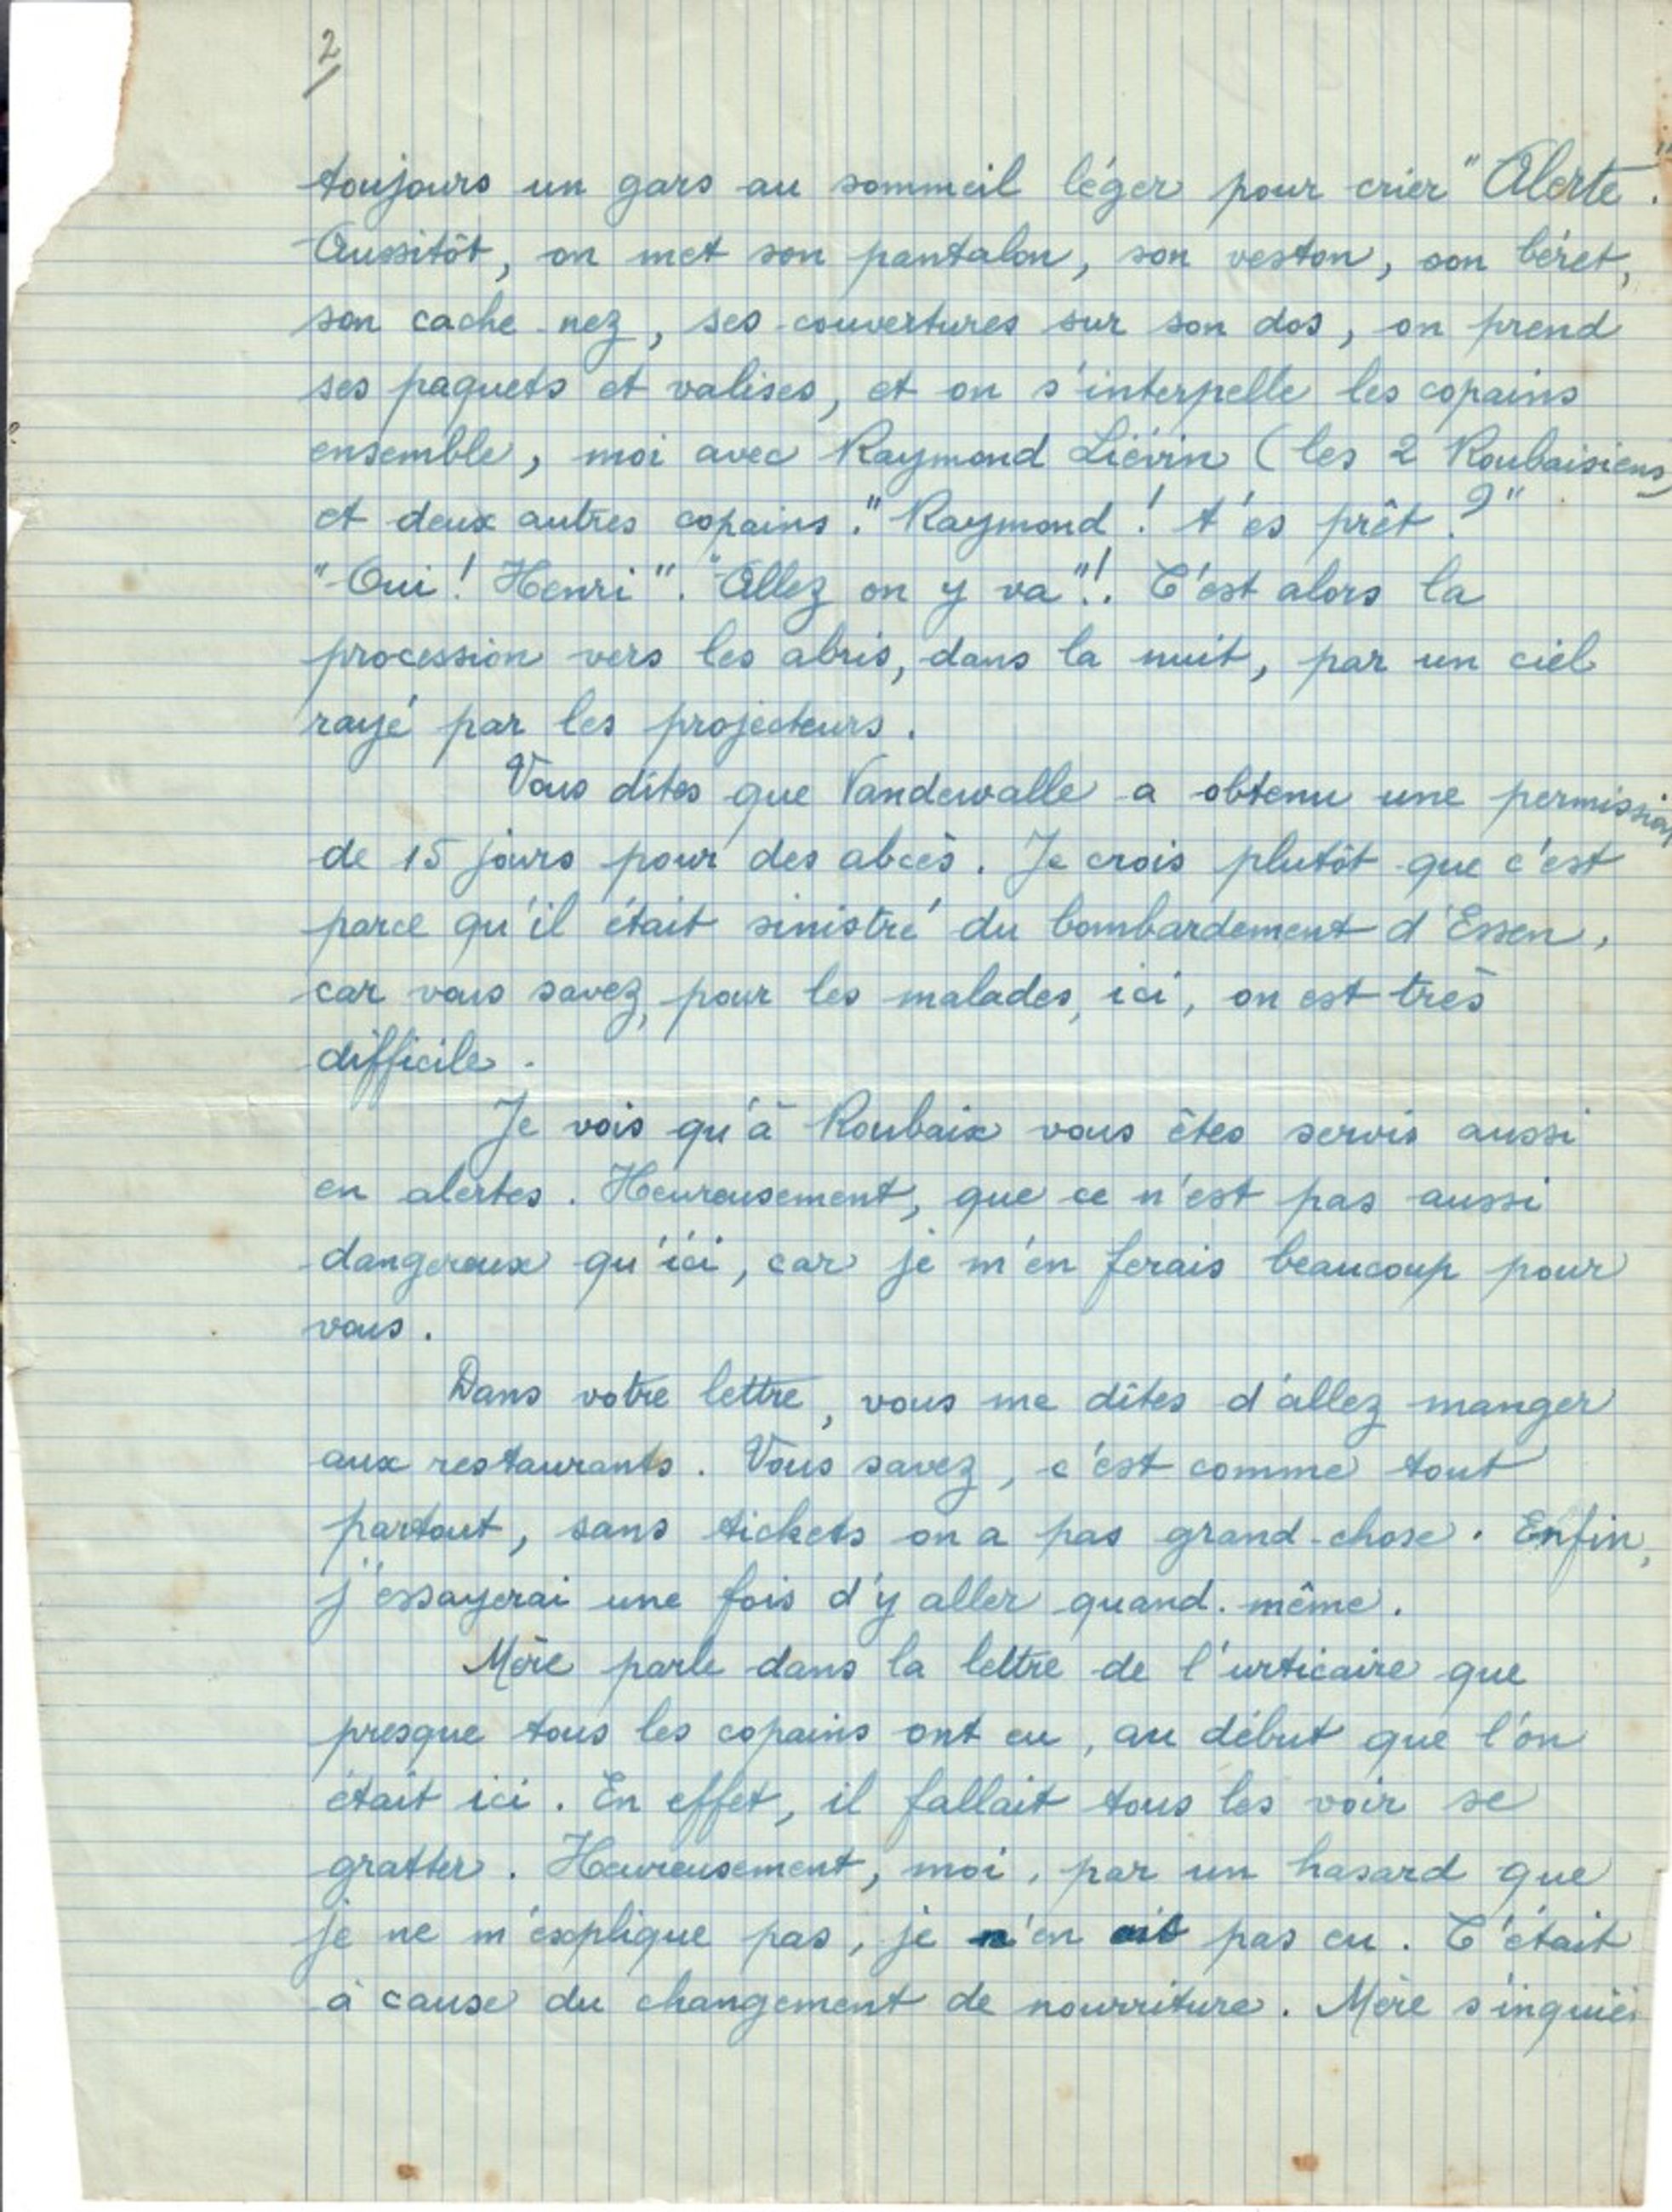 2
toujours un gars au sommeil léger pour crier "Alerte".
Aussitôt, on met son pantalon, son veston, son béret,
son cache-nez, ses couvertures sur son dos, on prend
ses paquets et valises, et on s'interpelle les copains
ensemble, moi avec Raymond Liévin (les 2 Roubaisiens)
et deux autres copains. "Raymond ! t'es prêt ?"
"Oui ! Henri". "Allez on y va"!. C'est alors la
procession vers les abris, dans la nuit, par un ciel
rayé par les projecteurs.
Vous dîtes que Vandewalle a obtenu une permission
de 15 jours pour des abcès. Je crois plutôt que c'est
parce qu'il était sinistré du bombardement d'Essen,
car vous savez, pour les malades, ici, on est très
difficile.
Je vois qu'à Roubaix vous êtes servis aussi
en alertes. Heureusement, que ce n'est pas aussi
dangereux qu'ici, car je m'en ferais beaucoup pour
vous.
Dans votre lettre, vous me dîtes d'allez manger
aux restaurants. Vous savez, c'est comme tout
partout, sans tickets on a pas grand-chose. Enfin,
j'essayerai une fois d'y aller quand-même.
Mère parle dans la lettre de l'urticaire que
presque tous les copains ont eu, au début que l'on
était ici. En effet, il fallait tous les voir se
gratter. Heureusement, moi, par un hasard que
je ne m'explique pas, je n'en ais pas eu. C'était
à cause du changement de nourriture. Mère s'inquiè